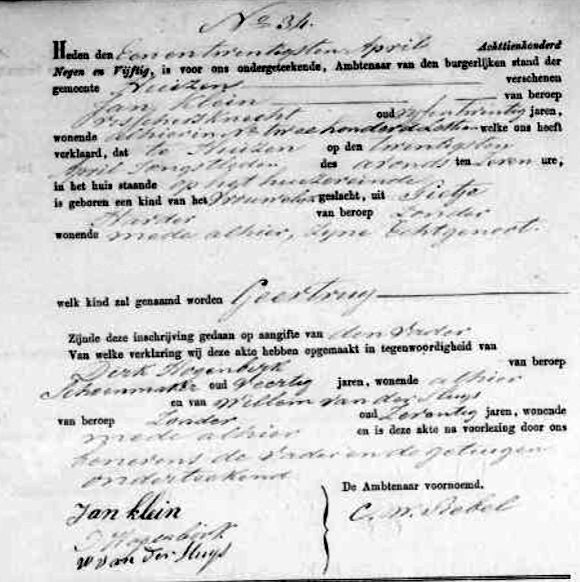 No 34.
Heden den Een en twentigsten April Achttienhonderd
Negen en Vijftig, is voor ons ondergeteekende, Ambtenaar van den burgerlijken stand der
gemeente Huizen verschenen
Jan Klein van beroep
visschersknecht oud vyfentwintig jaren,
wonende alhier in No tweehonderd welke ons heeft
verklaard, dat te Huizen op den twentigsten
April Jongstleden des avonds ten Zeven ure,
in het huis staande op het huizereinde
is geboren een kind van het Vrouwelyk geslacht, uit Pietje
Harder van beroep Zonder
wonende mede alhier, zyne Echtgenoot.
welk kind zal genaamd worden Geertruy
Zijnde deze inschrijving gedaan op aangifte van den Vader
Van welke verklaring wij deze akte hebben opgemaakt in tegenwoordigheid van
Dirk Hogenbirk van beroep
Schoenmaker oud Veertig jaren, wonende alhier
en van Willem van der Sluys
van beroep Zonder oud Zeventig jaren, wonende
mede alhier en is deze akte na voorlezing door ons
benevens de vader en de getuigen
onderteekend
De Ambtenaar voornoemd.
Jan klein
Hogenbirk
W van der Sluys